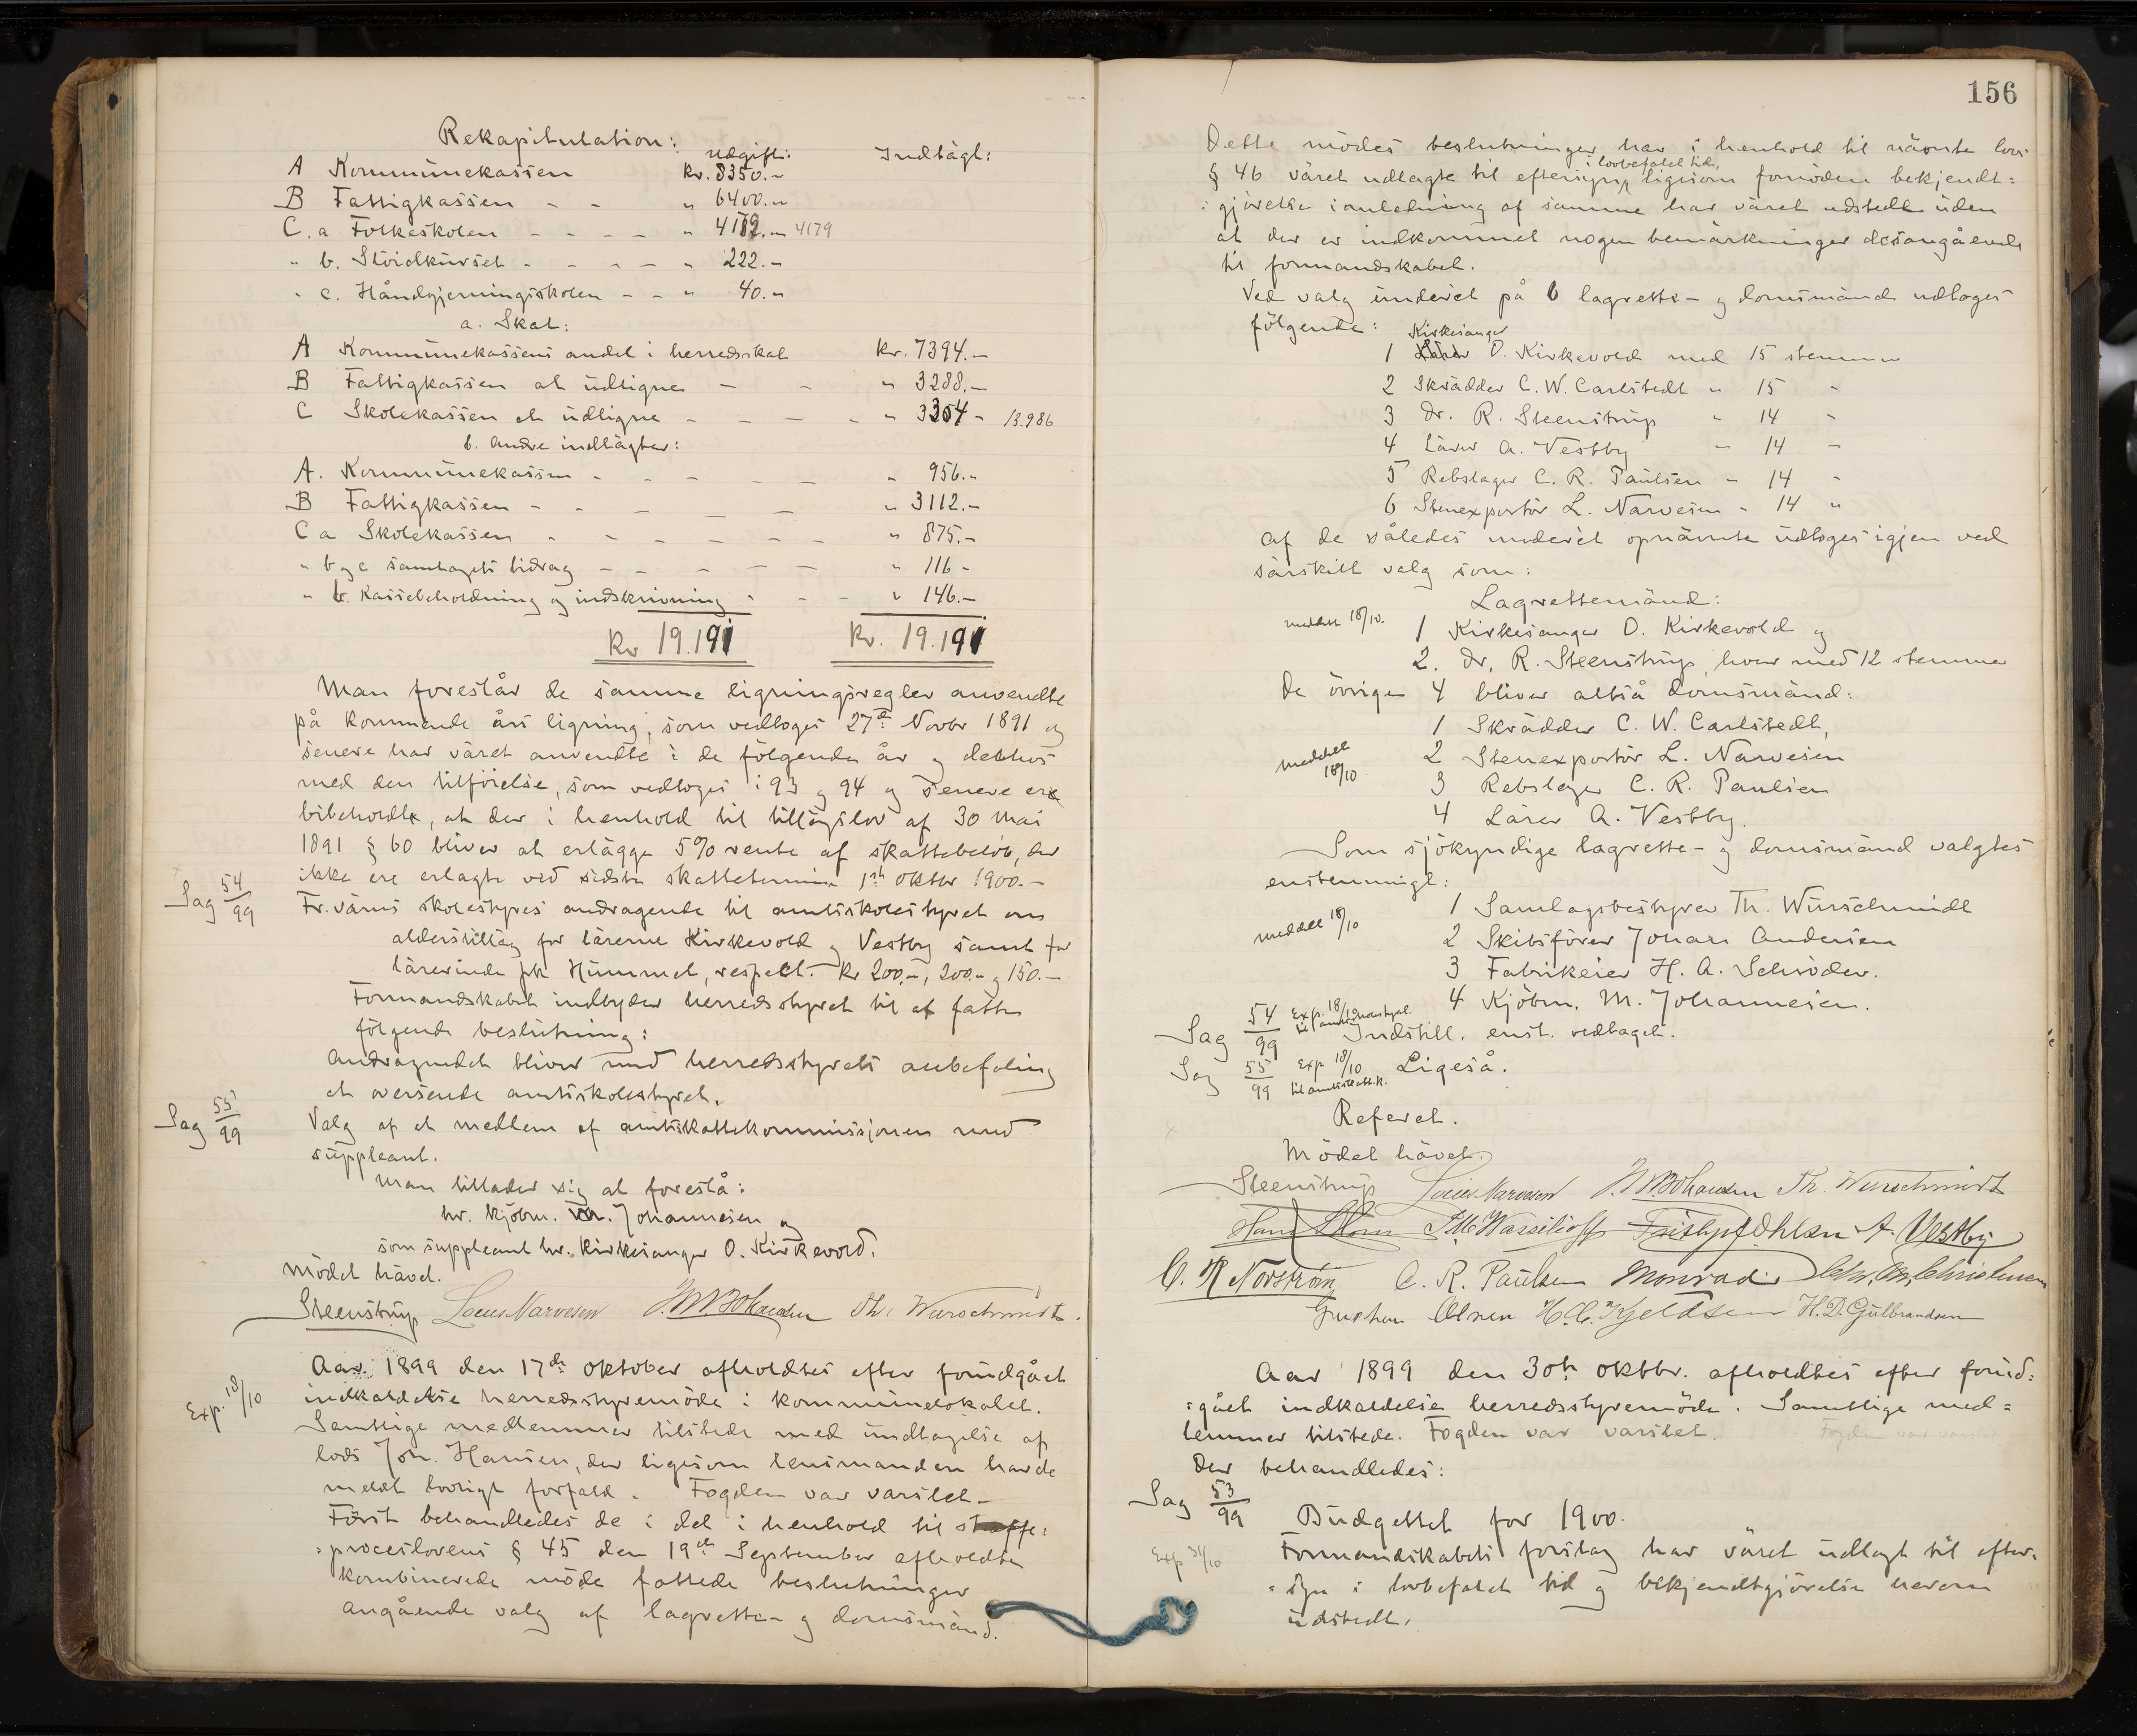 Rekapitulation:
Udgift: Indtägt:
A Kommunekassen kr. 8350.-
B Fattigkassen - - " 6400.-
C. a Folkeskolen - - - - " 4182.- 4179
" b. Slöidkurset - - - - " 222.-
" c. Håndgjerningsskolen - - " 40.-
a. Skat:
A Kommunekassens andel i herredsskat kr. 7394.-
B Fattigkassen at udligne - - " 3288.-
C Skolekassen at udligne - - - - " 3304 - 13.986
b. Andre indtägter:
A. Kommunekassen - - - - - " 956.-
B Fattigkassen - - - - - " 3112.-
C a Skolekassen - - - - - - " 875.-
" b og c samlagets bidrag - - - - - " 116 -
" b. Kassebeholdning og indskrivning - - - " 146.-
Kr 19.191 Kr. 19.191
Man foreslår de samme ligningsregler anvendte
på kommende års ligning, som vedtoges 27de Novbr 1891 og
senere har väret anvendte i de fölgende år og desthos
med den tilförelse, som vedtoges i 93 og 94 og senere ere
bibeholdte, at der i henhold til tillägslov af 30 Mai
1891 § 60 bliver at erlägge 5% rente af skattebelöb, der
ikke ere erlagte ved sidste skattetermin 1ste oktbr 1900.-
Sag 54/99 Fr.värns skolestyres andragende til amtsskolestyret om
alderstilläg for lärerne Kirkevold og Vestby samt for
lärerinde frk Hummel, respect. kr 200,-, 200.- og 150.-
Formandskabet indbyder herredsstyret til at fatte
fölgende beslutning:
Andragendet bliver med herredsstyrets anbefaling
at oversende amtsskolestyret.
Sag 55/99 Valg af et medlem af amtsskattekommissjonen med
suppleant.
Man tillader sig at foreslå:
hr. kjöbm. M. Johannesen og
som suppleant hr. Kirkesanger O. Kirkevold.
Mödet hävet.
Steenstrup Louis Narvesen Th. Wurschmidt.
Aar 1899 den 17de oktober afholdtes efter forudgået
Exp. 18/10 indkaldelse herredsstyremöde i kommunelokalet.
Samtlige medlemmer tilstede med undtagelse af
lods Joh. Hansen, der ligesom lensmanden havde
meldt lovligt forfald. Fogden var varslet -
Först behandledes de i det i henhold til straffe:
:proceslovens § 45 den 19de September afholdte
kombinerede möde fattede beslutninger
angående valg af lagrette- og domsmänd.
156
Dette mödes beslutninger har i henhold til nävnte lovs
i lovbefalet tid,
§ 46 väret udlagte til eftersyn, ligesom fornöden bekjendt:
:gjörelse i anledning af samme har väret udstedt uden
at der er indkommet nogen bemärkninger desangående
til formandskabet.
Ved valg underet på 6 lagrette- og domsmänd udtoges
fölgende:
Kirkesanger
1 O. Kirkevold med 15 stemmer
2 Skrädder C. W. Carlstedt " 15 "
3 Dr. R. Steenstrup " 14 "
4 Lärer A. Vestby " 14 "
5 Rebslager C. R. Paulsen " 14 "
6 Stenexportör L. Narvesen " 14 "
af de således underet opnävnte udtoges igjen ved
särskilt valg som:
Lagrettemänd:
meddelt 18/10. 1 Kirkesanger O. Kirkevold og
2. Dr. R. Steenstrup, hver med 12 stemmer
De övrige 4 bliver altså domsmänd:
1 Skrädder C. W. Carlstedt,
meddelt 18/10 2 Stenexportör L. Narvesen
3 Rebslager C. R. Paulsen
4 Lärer A. Vestby.
Som sjökyndige lagrette- og domsmänd valgtes
enstemmigt:
1 Samlagsbestyrer Th. Wurschmidt
meddelt 18/10 2 Skibsförer Johan Andersen
3 Fabrikeier H. A. Schröder.
4 Kjöbm. M. Johannesen.
Sag 54/99 Exp. 18/10 til amtsskolestyret. Indstill. enst. vedtaget.
Sag 55/99 Exp 18/10 til amtsskattek. Ligeså.
Referat.
Mödet hävet.
Steenstrup Louis Narvesen Th. Wurschmidt
Hans Frithjof Ohlsen A. Vestby
C. R Norström C. R. Paulsen Monrad Chr. Christensen
Gustav Olsen H. C. Kjeldsen H. D. Gulbrandsen
Aar 1899 den 30te oktbr. afholdtes efter forud:
:gået indkaldelse herredsstyremöde. Samtlige med=
lemmer tilstede. Fogden var varslet. Fogden var varslet
Der behandledes:
Sag 53/99 Budgettet for 1900.
Exp 31/10 Formandskabets forslag har väret udlagt til efter:
:syn i lovbefalet tid og bekjendtgjörelse herom
udstedt.